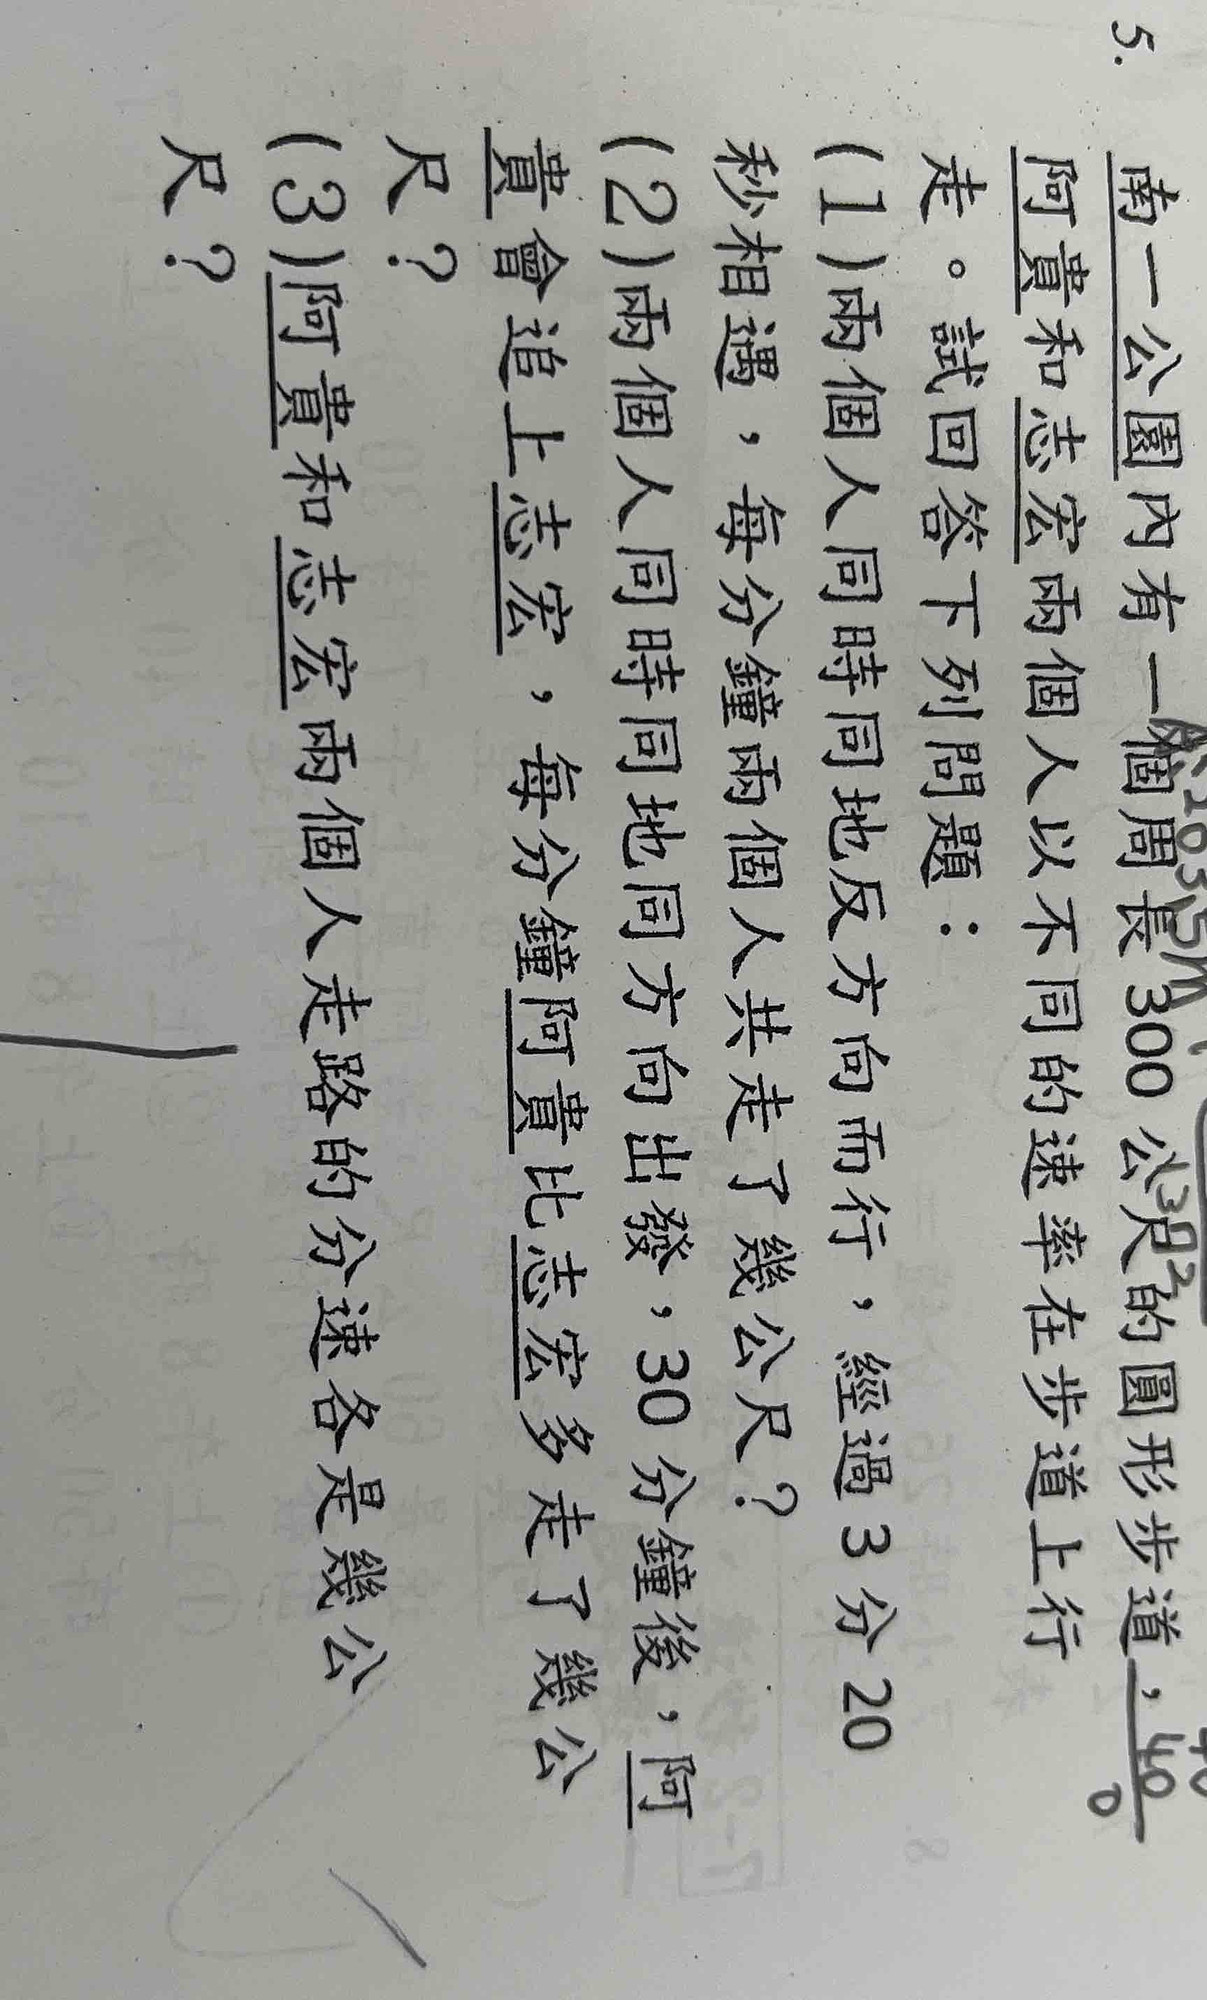 5.
南一公園內有一個周長 300 公尺的圓形步道，
阿貴和志宏兩個人以不同的速率在步道上行
走。試回答下列問題：
(1)兩個人同時同地反方向而行，經過 3 分 20
秒相遇，每分鐘兩個人共走了幾公尺？
(2)兩個人同時同地同方向出發，30 分鐘後，阿
貴會追上志宏，每分鐘阿貴比志宏多走了幾公
尺？
(3)阿貴和志宏兩個人走路的分速各是幾公
尺？
40
0